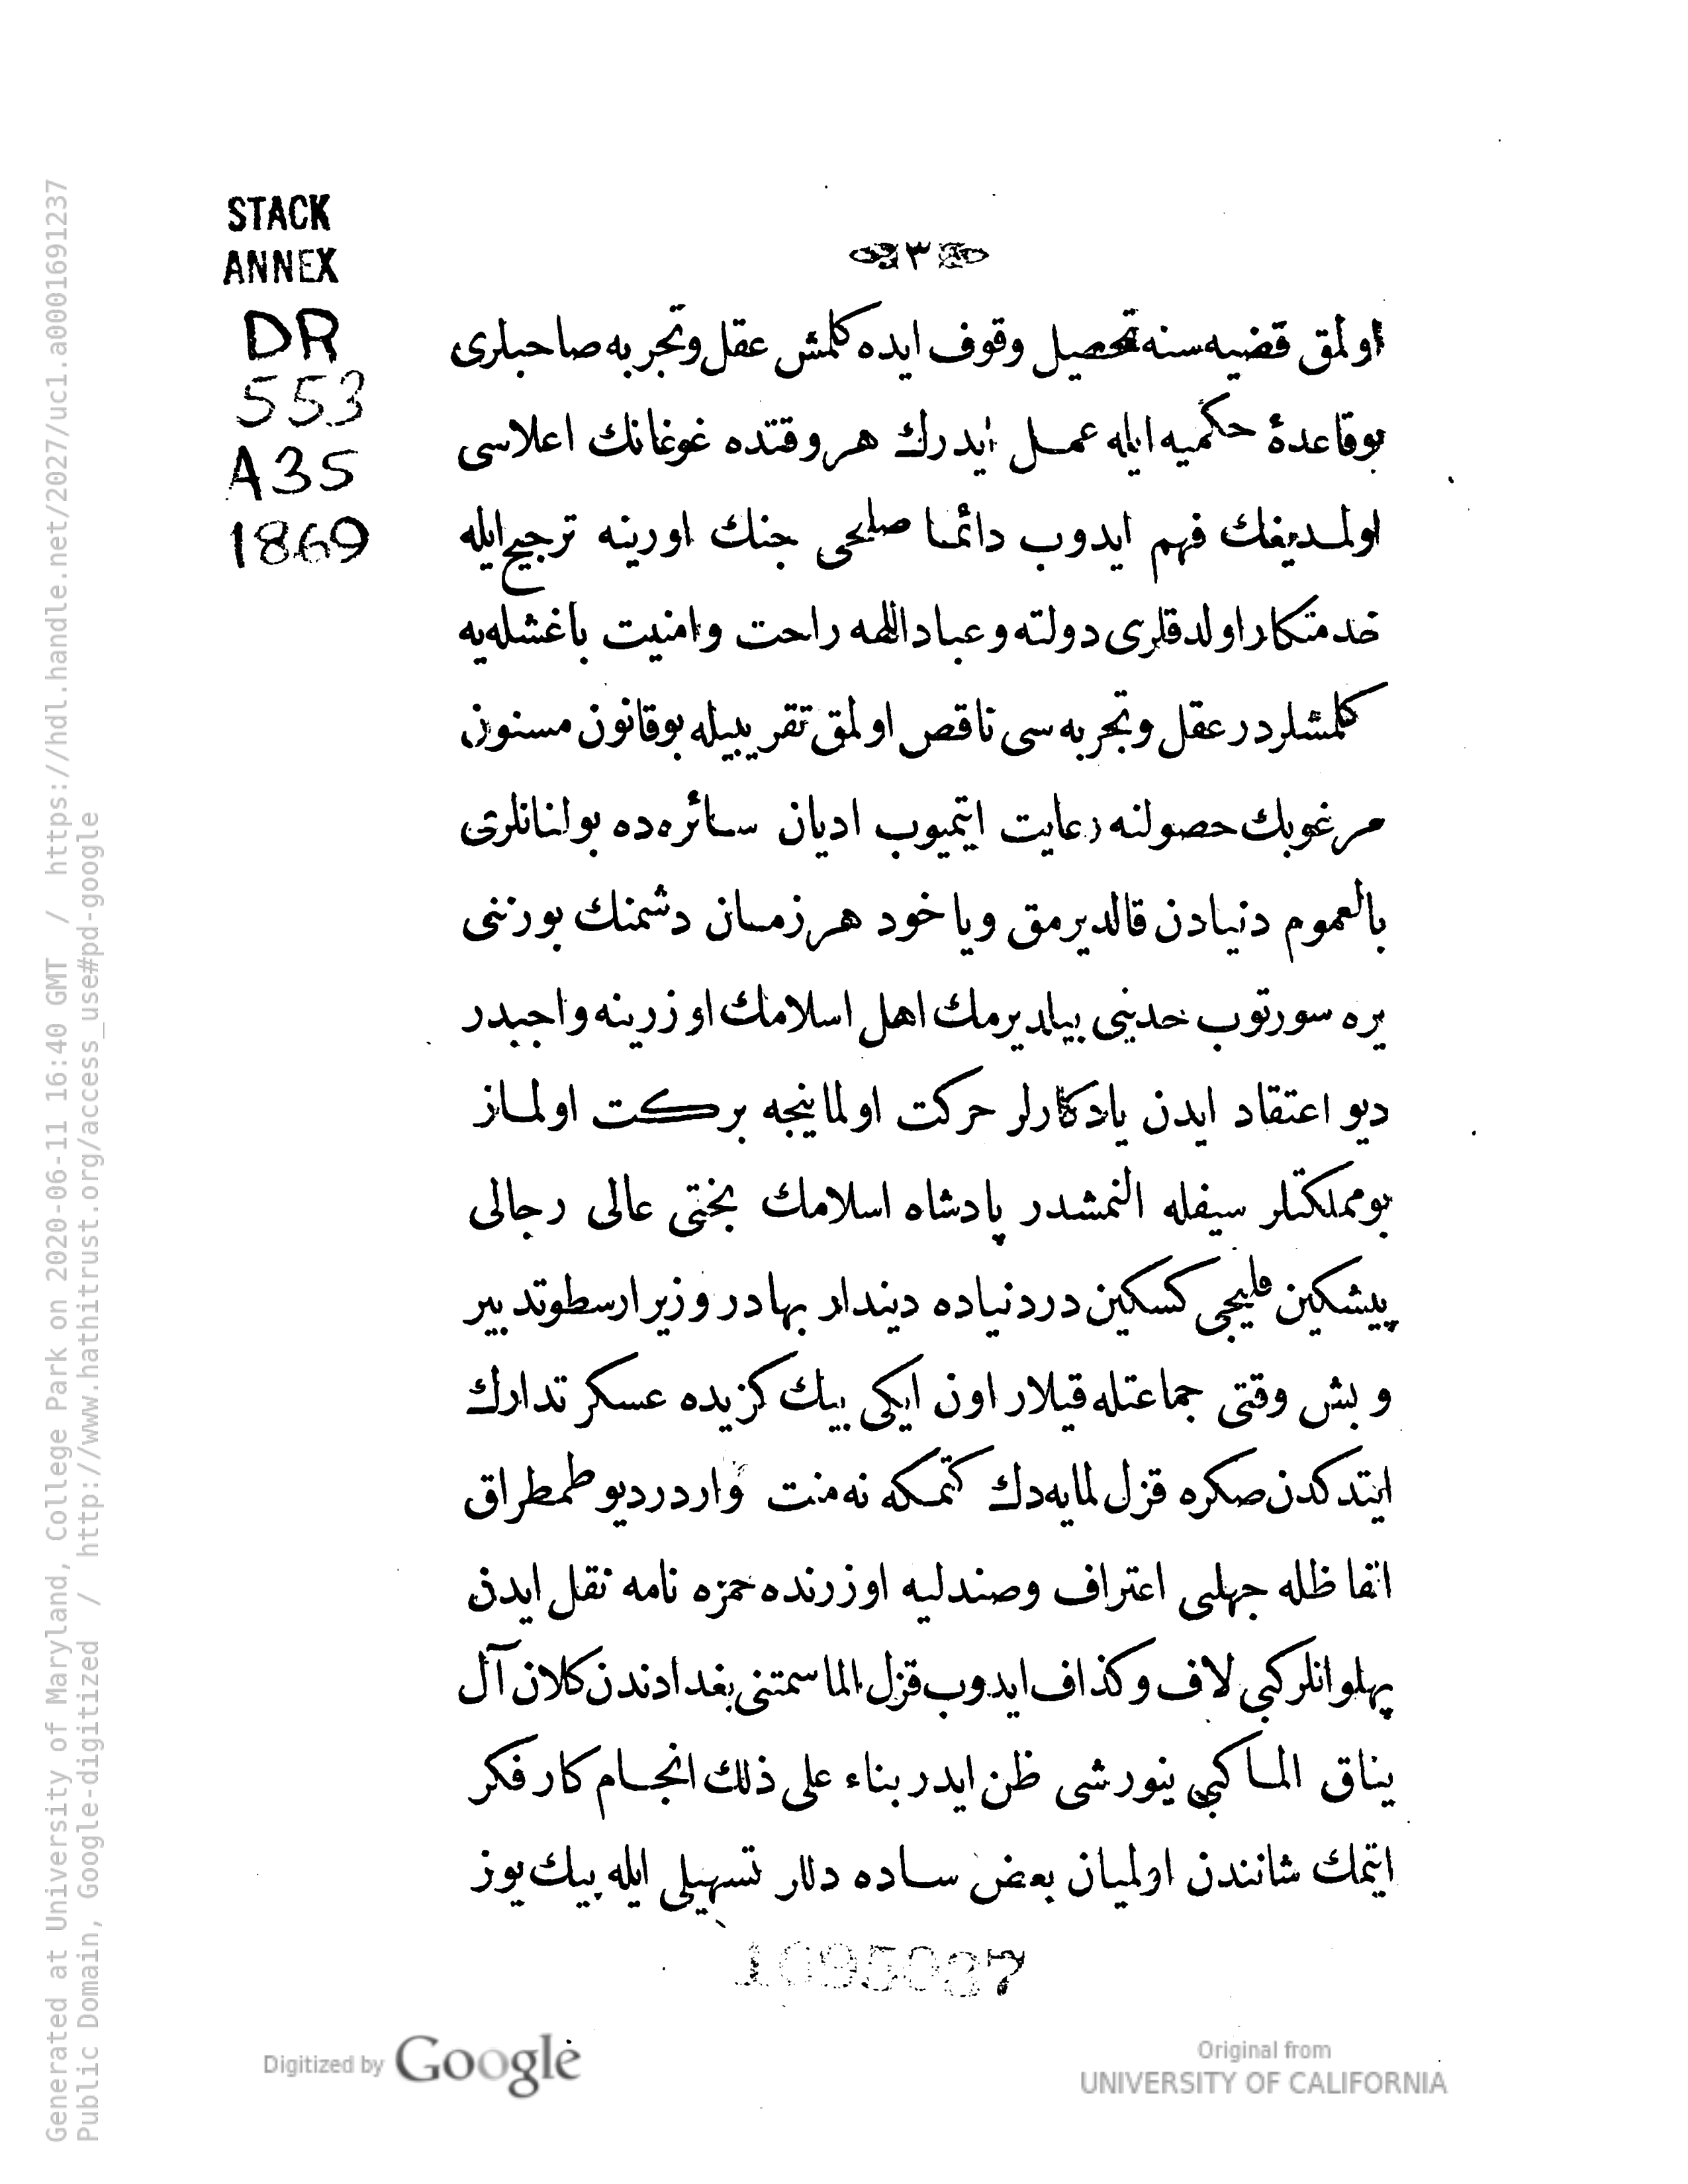 STACK
ANNEX
DR
553
A35
1869
٣
اولمق قضیه‌سنه تحصیل وقوف ایده کلمش عقل وتجربه صاحبلری
بوقاعدهٔ حکمیه ایله عمل ایدرك هر وقتده غوغانك اعلاسی
اولمدیغك فهم ایدوب دائما صلحی جنك اورینه ترجیح ایله
خدمتکار اولدقلری دولته وعباداللهه راحت وامنیت باغشله‌یه
کلمشلردر عقل وتجربه‌سی ناقص اولمق تقریبیله بوقانون مسنون
مرغوبك حصولنه رعایت ایتمیوب ادیان سائره‌ده بولنانلری
بالعموم دنیادن قالدیرمق ویاخود هر زمان دشمنك بورننی
یره سورتوب حدینی بیلدیرمك اهل اسلامك اوزرینه واجبدر
دیو اعتقاد ایدن یادکارلر حرکت اولماینجه برکت اولماز
بومملکتلر سیفله النمشدر پادشاه اسلامك بختی عالی رجالی
پیشکین قلیجی کسکین در دنیاده دیندار بهادر وزیر ارسطوتدبیر
و بش وقتی جماعتله قیلار اون ایکی بیك کزیده عسکر تدارك
ایتدکدن صکره قزل لمایه‌دك کتمکه نه منت واردر دیو طمطراق
اتفاظله جهلی اعتراف وصندلیه اوزرنده حمزه نامه نقل ایدن
پهلوانلر کبی لاف وکذاف ایدوب قزل الما سمتنی بغداددن کلان آل
یناق الما کبی ینور شی ظن ایدر بناء علی ذلك انجام کار فکر
ایتمك شانندن اولمیان بعض ساده دللر تسهیلی ایله بیك یوز
1095087
Digitized by Google
Original from
UNIVERSITY OF CALIFORNIA
Generated at University of Maryland, College Park on 2020-06-11 16:40 GMT / https://hdl.handle.net/2027/uc1.a0001691237
Public Domain, Google-digitized / http://www.hathitrust.org/access_use#pd-google